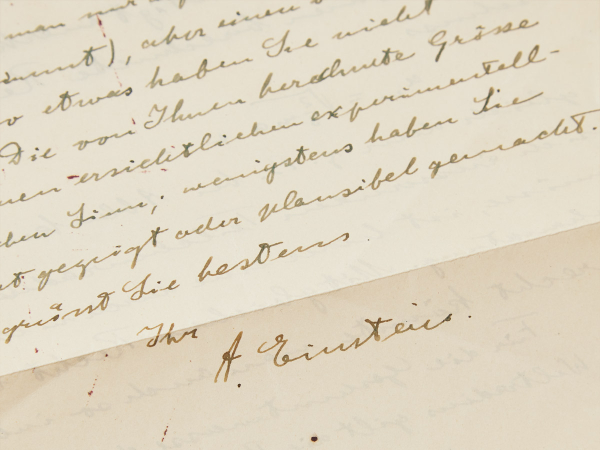 man nur
immt), aber einen
so etwas haben Sie nicht
Die von Ihnen berechnete Grösse
nen ersichtlichen experimentell-
chen Sinn; wenigstens haben Sie
t gezeigt oder plausibel gemacht.
grüsst Sie bestens
Ihr A. Einstein.